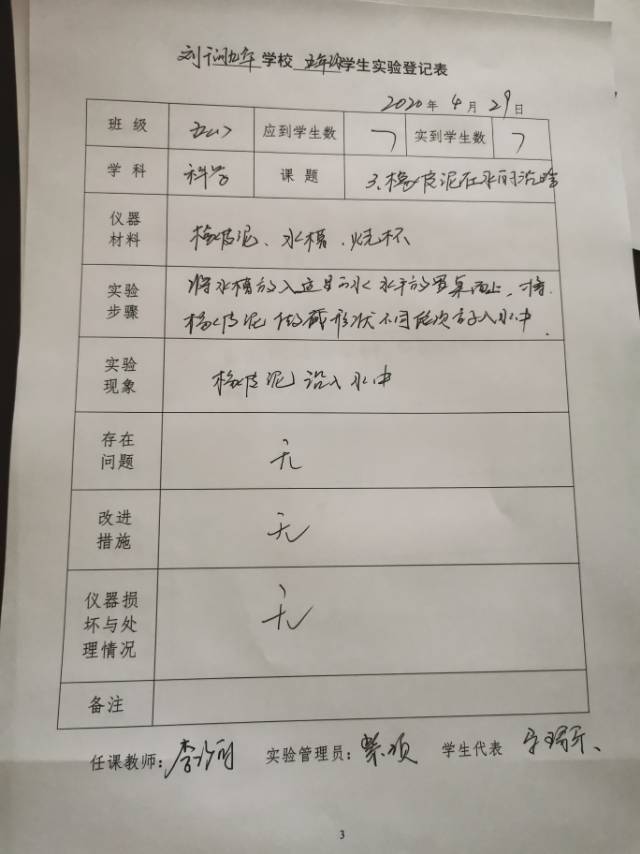 学校 五年级学生实验登记表
2020年4月29日
班级 五(1) 应到学生数 7 实到学生数 7
学科 科学 课题 3、橡皮泥在水的沉
仪器材料 橡皮泥、水槽、烧杯
实验步骤 将水槽放入适量的水水平放置桌面上,将
橡皮泥做成形状不同依次放入水中.
实验现象 橡皮泥沉入水中
存在问题 无
改进措施 无
仪器损坏与处理情况 无
备注
任课教师:李 实验管理员: 学生代表
3